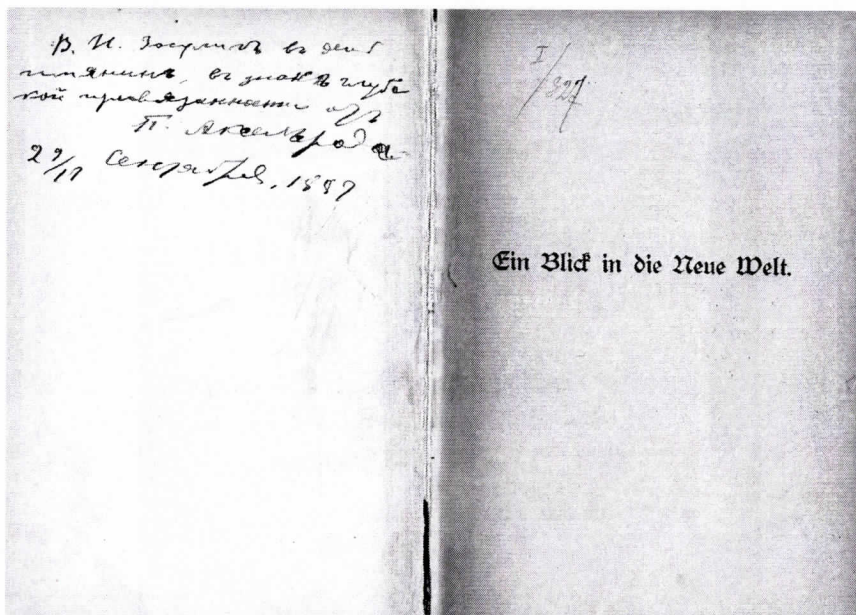 В. И. Засуличъ въ день
имянинъ, въ знакъ глубо
кой привязанности отъ
П. Аксельрода
29/17 Сентября, 1887
I/327
Ein Blick in die Neue Welt.